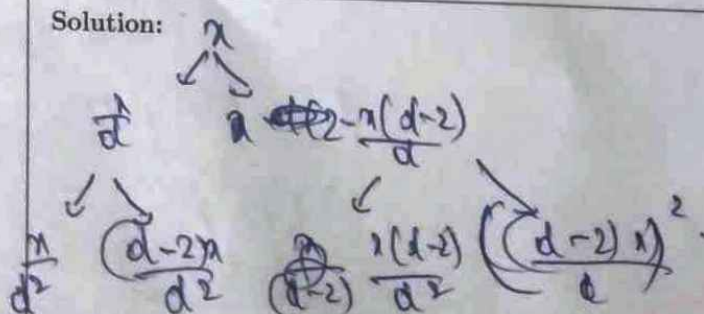 Solution: x
x/d x(d-2)/d
x/d² (d-2)x/d² x(d-2)/d² ((d-2)x)²/d